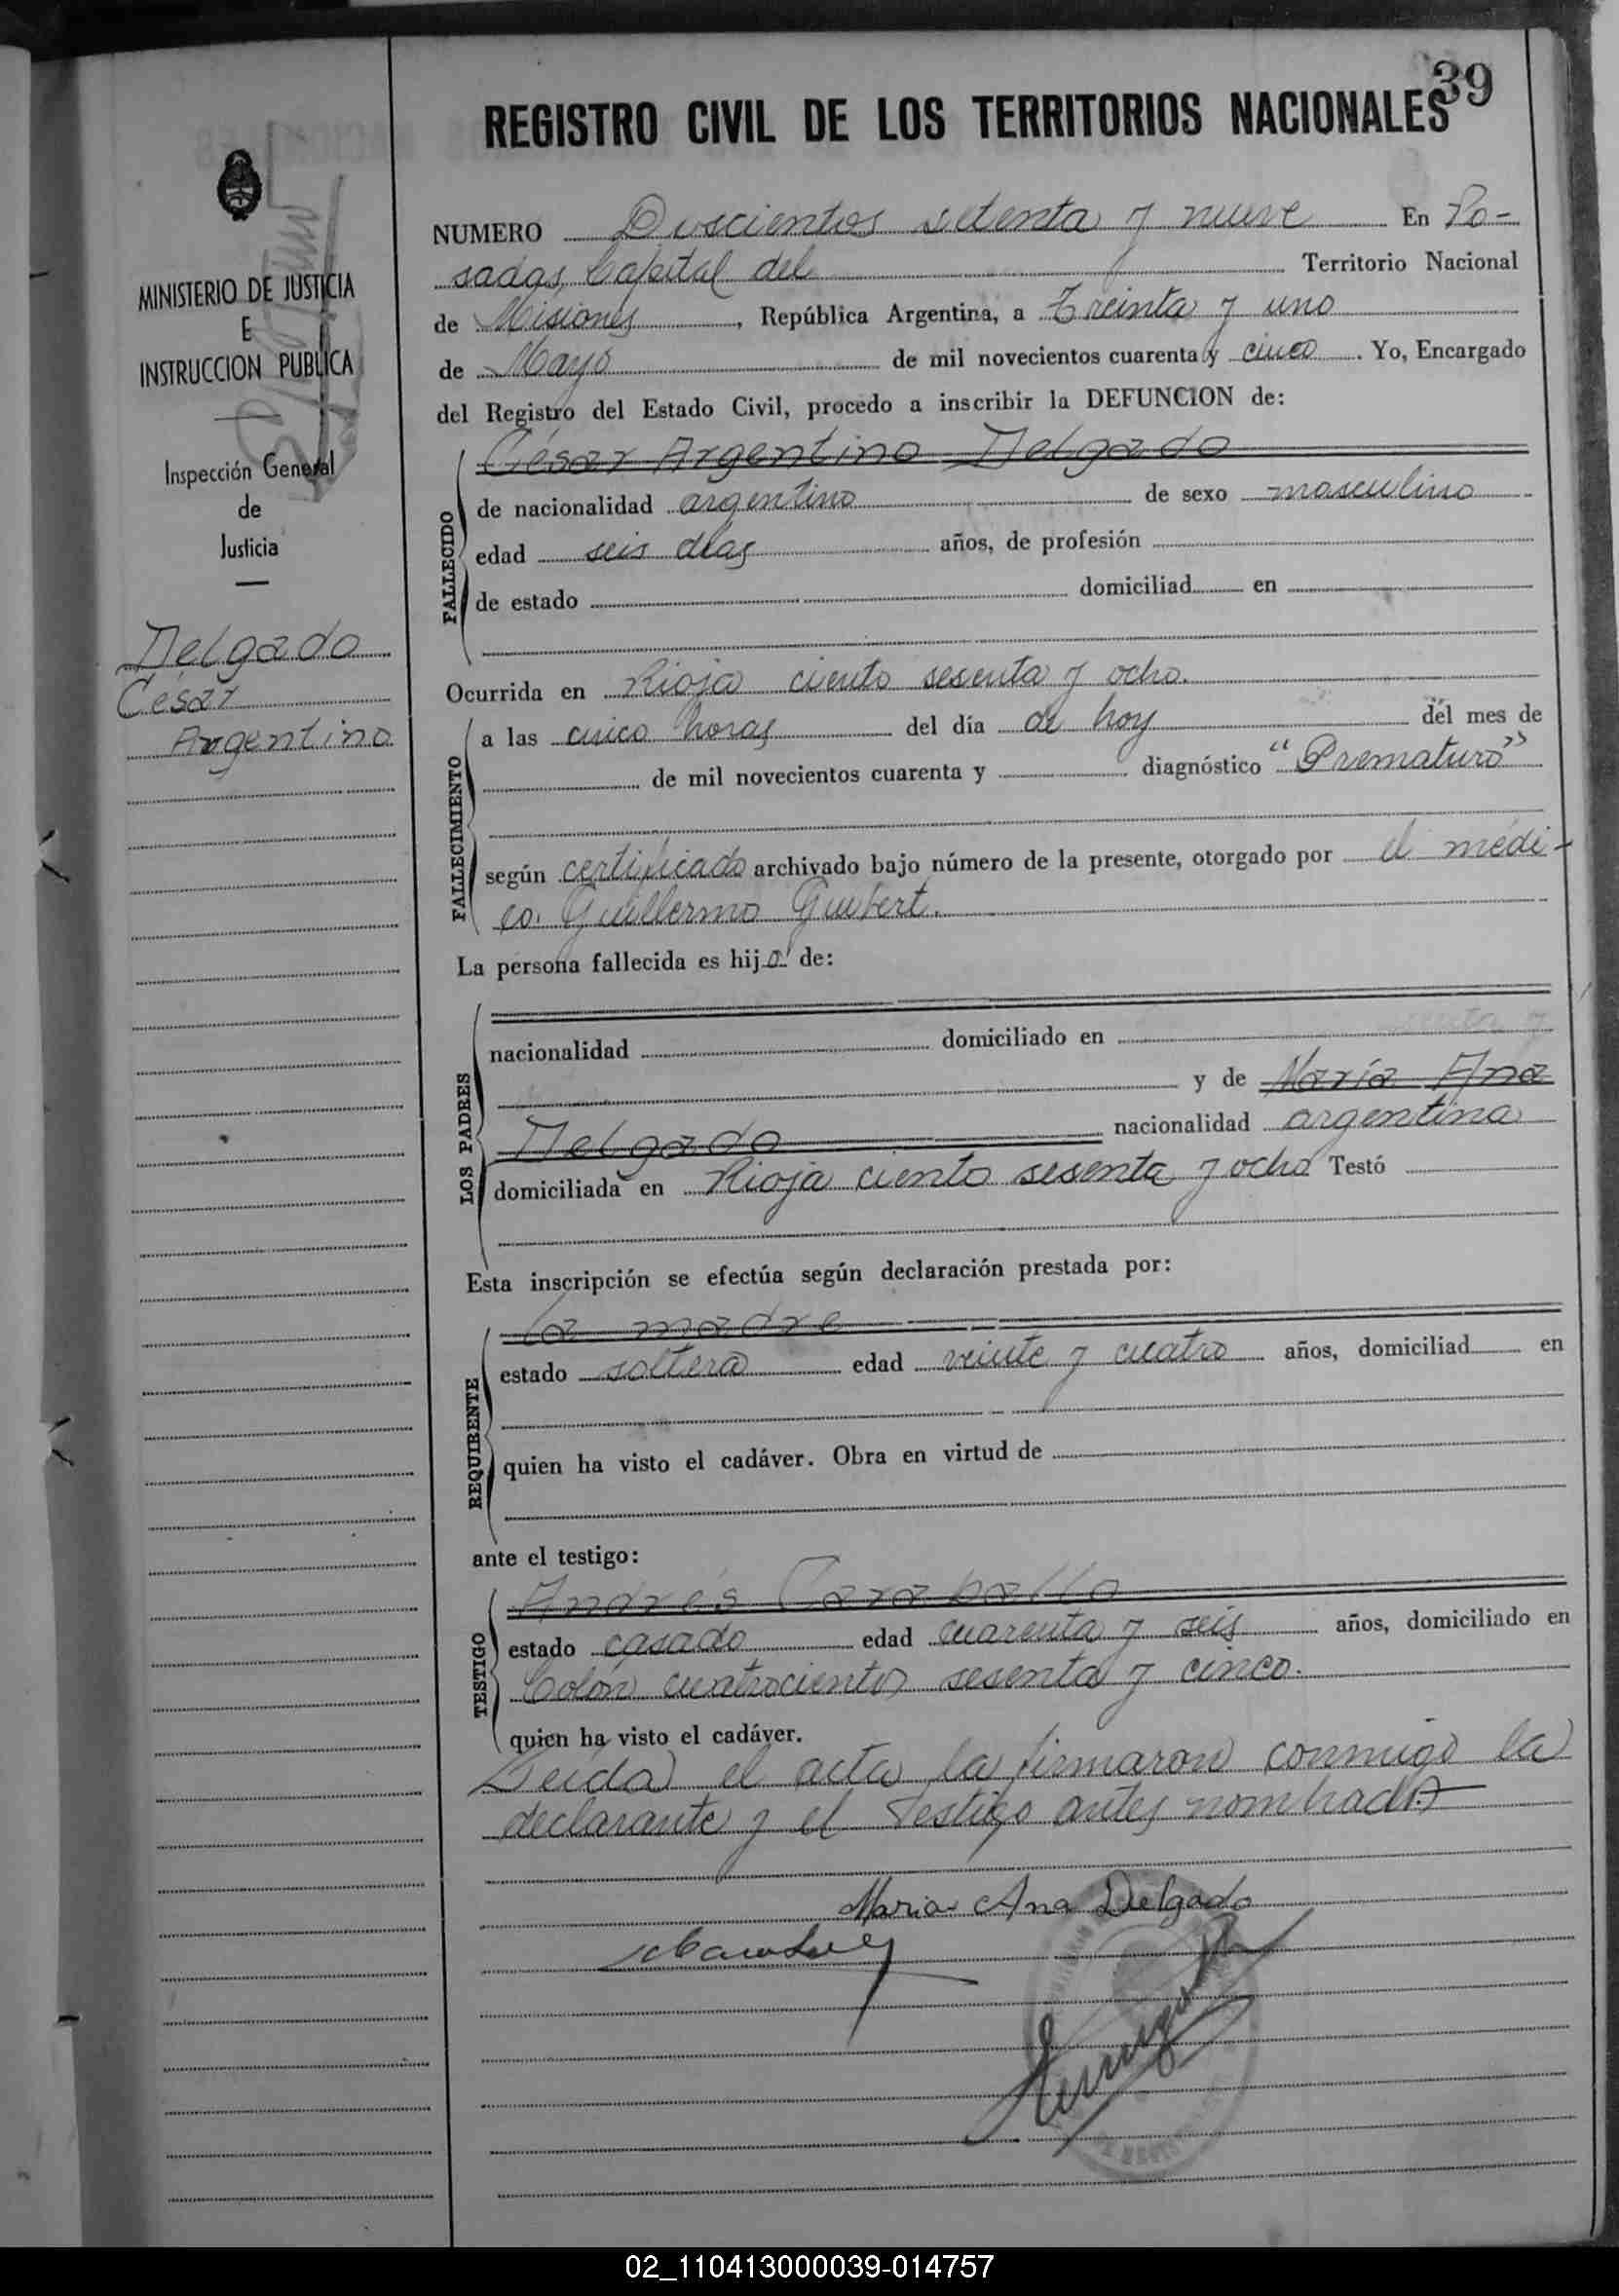 39
REGISTRO CIVIL DE LOS TERRITORIOS NACIONALES
MINISTERIO DE JUSTICIA
E
INSTRUCCION PUBLICA
Inspección General
de
Justicia
Delgado
César
Argentino
NUMERO Doscientos setenta y nueve En Po-
sadas, Capital del Territorio Nacional
de Misiones, República Argentina, a Treinta y uno
de Mayo de mil novecientos cuarenta y cinco. Yo, Encargado
del Registro del Estado Civil, procedo a inscribir la DEFUNCION de:
FALLECIDO
César Argentino Delgado
de nacionalidad argentino de sexo masculino
edad seis días años, de profesión
de estado domiciliad en
Ocurrida en Rioja ciento sesenta y ocho.
FALLECIMIENTO
a las cinco horas del día de hoy del mes de
de mil novecientos cuarenta y diagnóstico "Prematuro"
según certificado archivado bajo número de la presente, otorgado por el médi-
co. Guillermo Guibert.
La persona fallecida es hijo de:
LOS PADRES
nacionalidad domiciliado en
y de María Ana
Delgado nacionalidad argentina
domiciliada en Rioja ciento sesenta y ocho Testó
Esta inscripción se efectúa según declaración prestada por:
REQUIRENTE
La madre
estado soltera edad veinte y cuatro años, domiciliad en
quien ha visto el cadáver. Obra en virtud de
ante el testigo:
TESTIGO
Andrés Caraballo
estado casado edad cuarenta y seis años, domiciliado en
Colón cuatrocientos sesenta y cinco.
quien ha visto el cadáver.
Leída el acta la firmaron conmigo la
declarante y el testigo antes nombrado.
Maria Ana Delgado
02_110413000039-014757